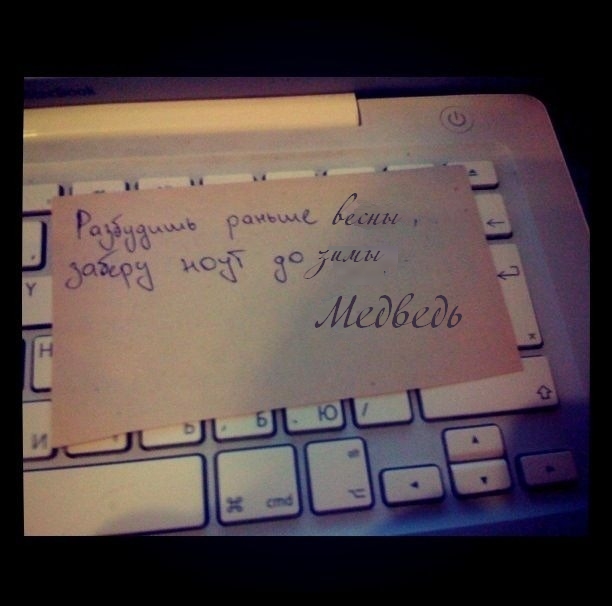 Разбудишь раньше весны,
заберу ноут до зимы
Медведь
Y
Н
И
Ь
Б
Ю
/
cmd